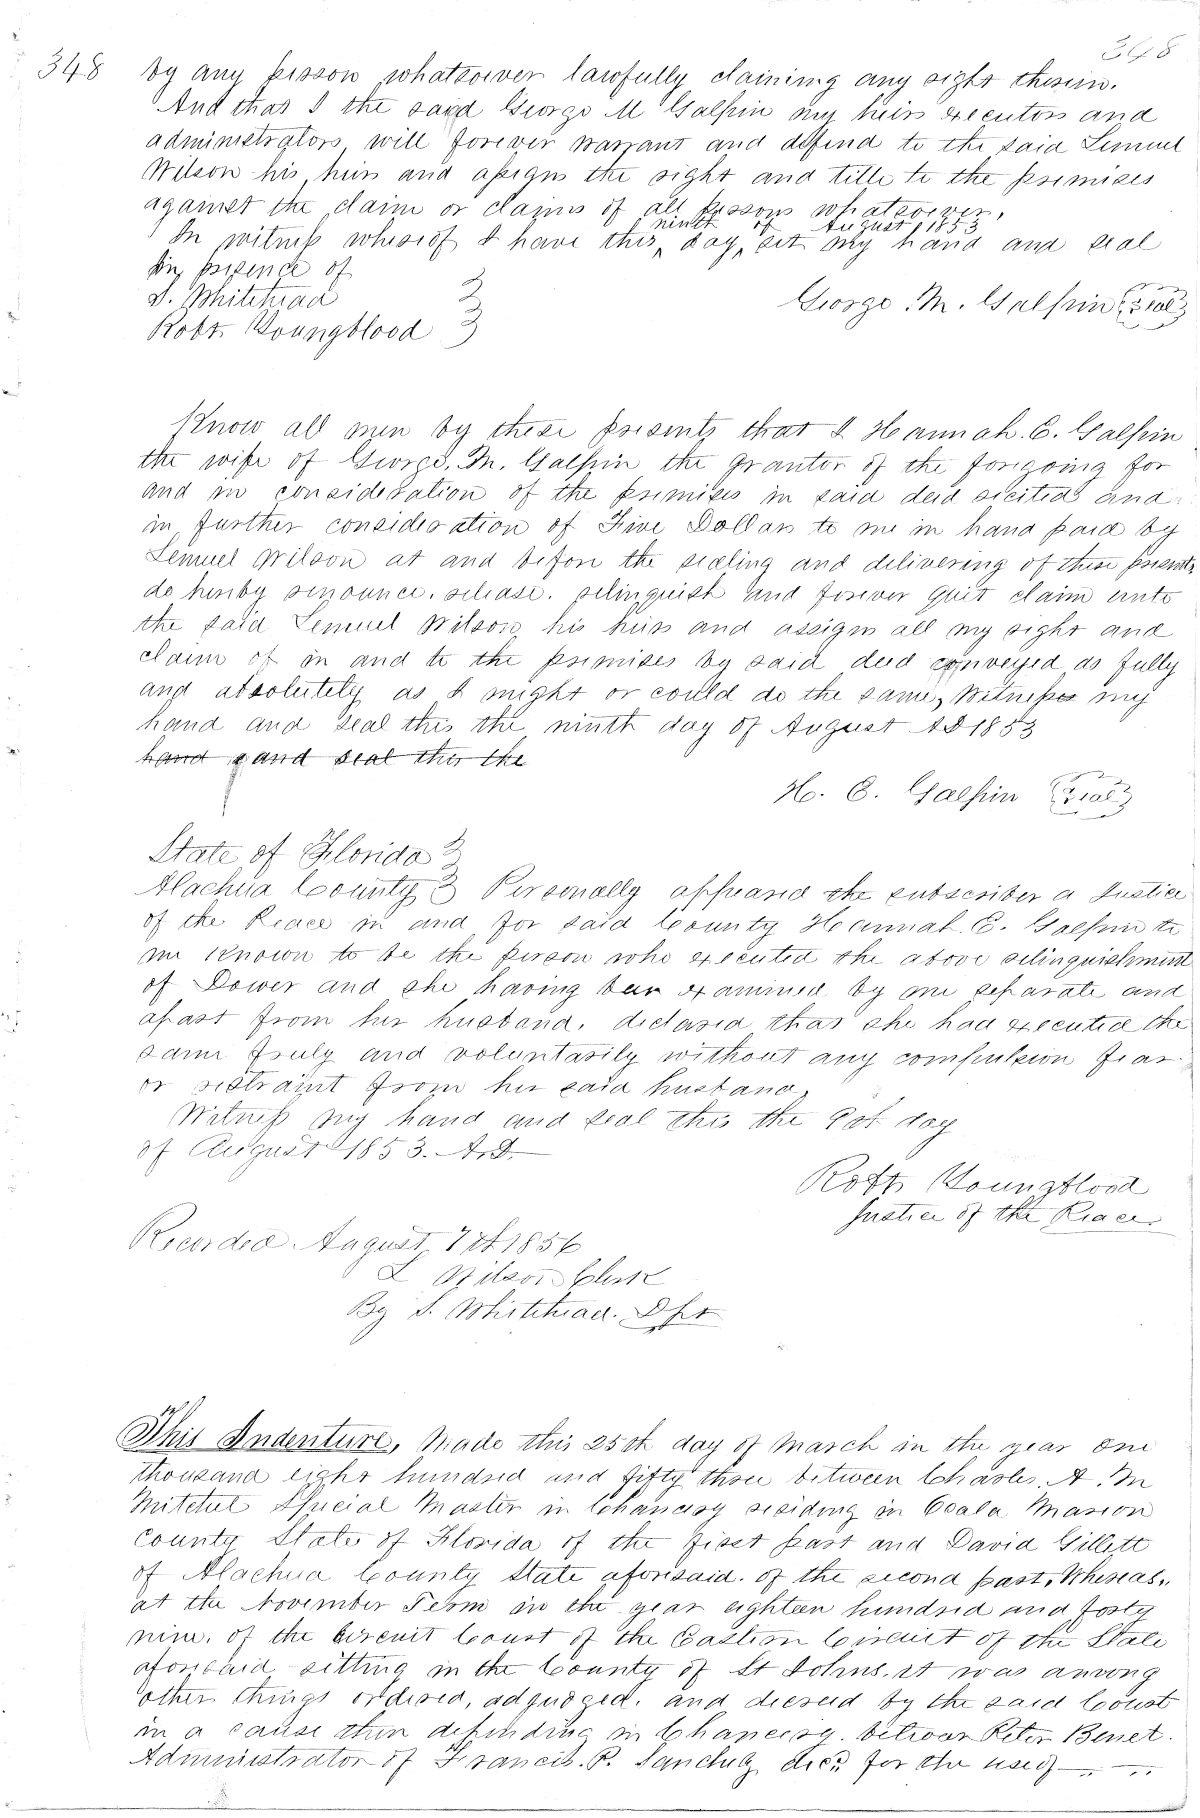 348
348
by any person whatsoever lawfully claiming any right therein.
And that I the said George M Galphin my heirs executors and
administrators will forever warrant and defend to the said Lemuel
Wilson his heirs and assigns the right and title to the premises
against the claim or claims of all persons whatsoever.
ninth of August 1853
In witness whereof I have this day set my hand and seal
In presence of
S. Whitehead
Robt. Youngblood
George. M. Galphin Seal
Know all men by these presents that I Hannah. E. Galphin
the wife of George. M. Galphin the grantor of the forgoing for
and in consideration of the premises in said deed recited and
in further consideration of Five Dollars to me in hand paid by
Lemuel Wilson at and before the sealing and delivering of these presents
do hereby renounce. release. relinquish and forever quit claim unto
the said Lemuel Wilson his heirs and assigns all my right and
claim of in and to the premises by said deed conveyed as fully
and absolutely as I might or could do the same, Witness my
hand and seal this the ninth day of August AD 1853
hand and seal this the
H. E. Galphin Seal
State of Florida
Alachua County Personally appeared the subscriber a Justice
of the Peace in and for said County Hannah. E. Galphin to
me known to be the person who executed the above relinquishment
of Dower and she having been examined by me separate and
apart from her husband. declared that she had executed the
same truly and voluntarily without any compulsion fear
or restraint from her said husband.
Witness my hand and seal this the day
of August 1853. A.D.
Robt. Youngblood
Justice of the Peace
Recorded August 7th 1856
L Wilson Clerk
By S. Whitehead. Dpt
This Indenture, Made this 25th day of March in the year one
thousand eight hundred and fifty three between Charles. A. M
Mitchel Special Master in Chancery residing in Ocala Marion
County State of Florida of the first part and David Gillett
of Alachua County State aforesaid. of the second part. Whereas,
at the November Term in the year eighteen hundred and forty
nine. of the Circuit Court of the Eastern Circuit of the State
aforesaid sitting in the County of St Johns. it was among
other things ordered, adjudged. and decreed by the said Court
in a cause then depending in Chancery. between Peter Benet.
Administrator of Francis. P. Sanchez decd for the use of